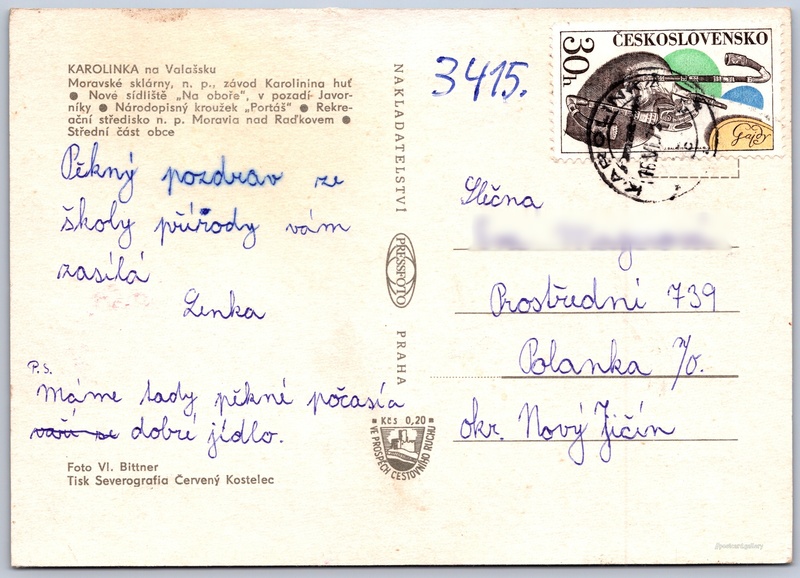 KAROLINKA na Valašsku
Moravské sklárny, n. p., závod Karolinina huť
● Nové sídliště „Na oboře", v pozadí Javor-
níky ● Národopisný kroužek „Portáš" ● Rekre-
ační středisko n. p. Moravia nad Raťkovem ●
Střední část obce
Pěkný pozdrav ze
školy přírody vám
zasílá
Lenka
P.S.
Máme tady pěkné počasía
vaří se dobré jídlo.
Foto Vl. Bittner
Tisk Severografia Červený Kostelec
NAKLADATELSTVÍ
PRESSFOTO
PRAHA
Kčs 0,20
VE PROSPĚCH CESTOVNÍHO RUCHU
3415.
ČESKOSLOVENSKO
30h
Gajdy
Slečna
Prostřední 739
Polanka n/o.
okr. Nový Jičín
//postcard.gallery